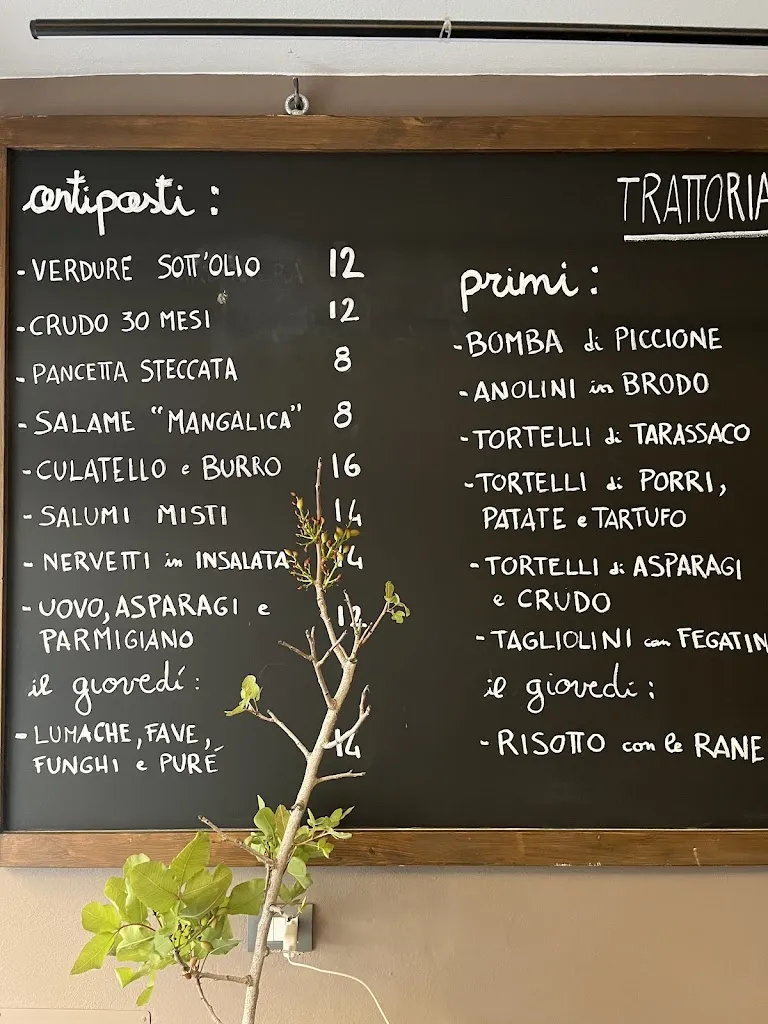 antipasti:
- VERDURE SOTT'OLIO 12
- CRUDO 30 MESI 12
- PANCETTA STECCATA 8
- SALAME "MANGALICA" 8
- CULATELLO e BURRO 16
- SALUMI MISTI 14
- NERVETTI in INSALATA 14
- UOVO, ASPARAGI e 12
PARMIGIANO
il giovedí:
- LUMACHE, FAVE,
FUNGHI e PURÉ 14
TRATTORIA
primi:
- BOMBA di PICCIONE
- ANOLINI in BRODO
- TORTELLI di TARASSACO
- TORTELLI di PORRI,
PATATE e TARTUFO
- TORTELLI di ASPARAGI
e CRUDO
- TAGLIOLINI con FEGATIN
il giovedí:
- RISOTTO con le RANE